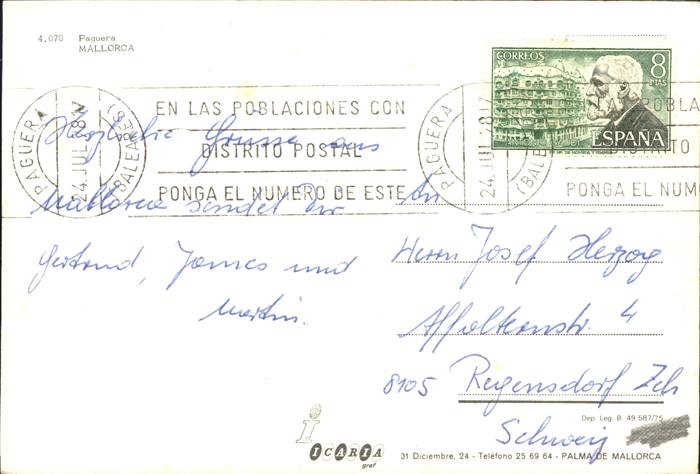 4.070 Paguera
MALLORCA
CORREOS
8
PTAS
ESPAÑA
PAGUERA
24.JUL
(BALEARES)
EN LAS POBLACIONES CON
DISTRITO POSTAL
PONGA EL NUMERO DE ESTE
PAGUERA
24.JUL
(BAL
POBLA
DISTRITO
PONGA EL NUM
Herzliche Grüsse aus
Mallorca sendet Dir
Gertrud, James und
Martin.
An
Herrn Josef Herzog
Affolternstr. 4
8105 Regensdorf Zch
Schweiz
Dep. Leg. B. 49.587/75
i
ICARIA
graf
31 Diciembre, 24 - Teléfono 25 69 64 - PALMA DE MALLORCA